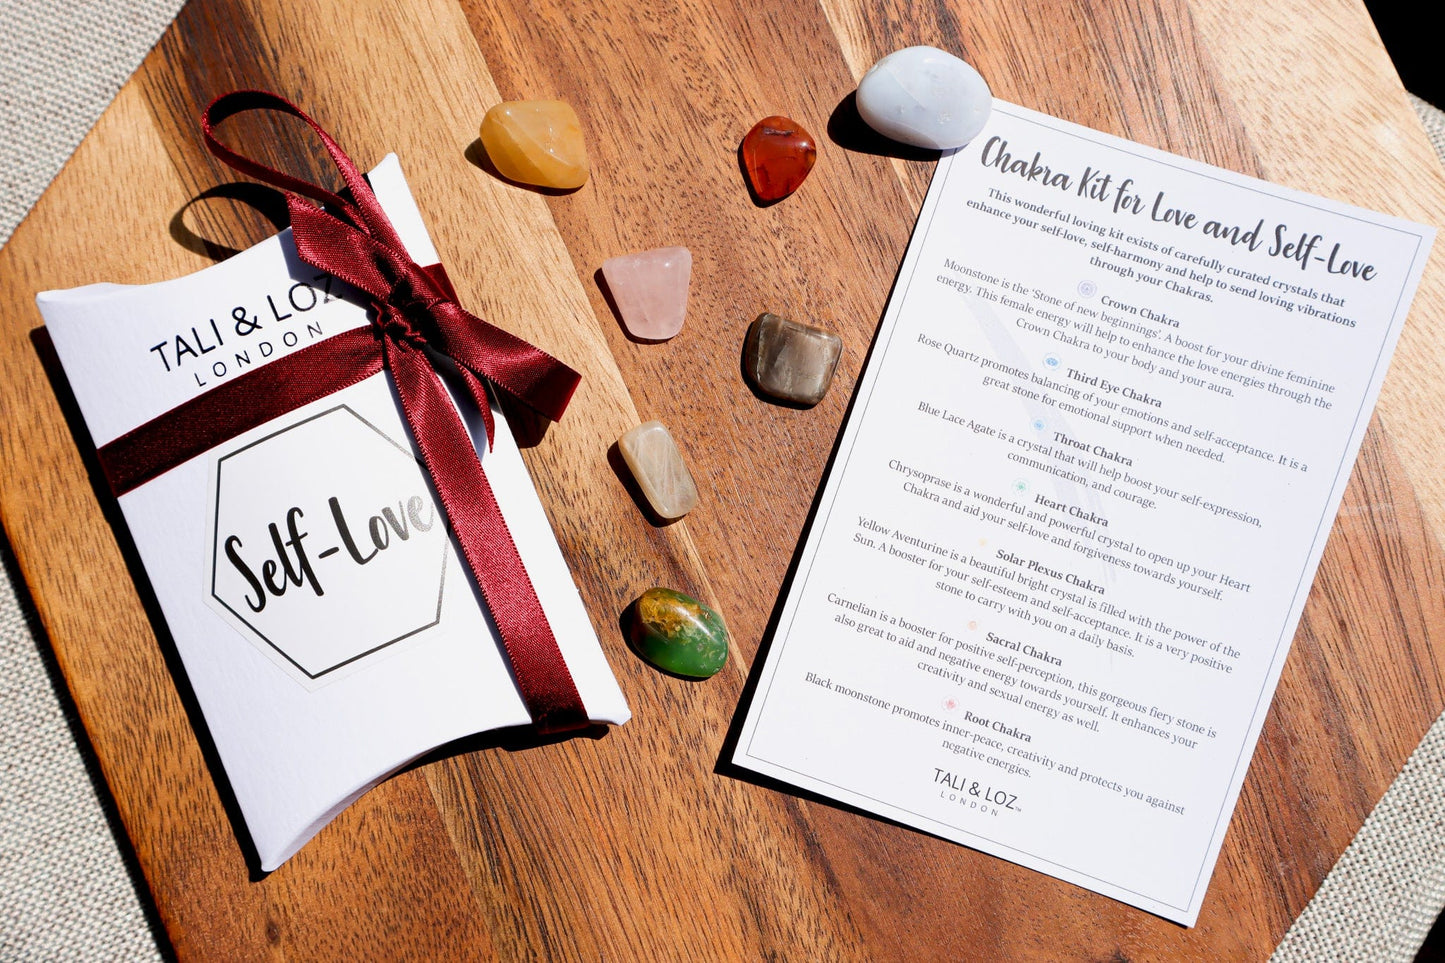 TALI & LOZ
LONDON
Self-Love
Chakra Kit for Love and Self-Love
This wonderful loving kit exists of carefully curated crystals that
enhance your self-love, self-harmony and help to send loving vibrations
through your Chakras.
Crown Chakra
Moonstone is the 'Stone of new beginnings'. A boost for your divine feminine
energy. This female energy will help to enhance the love energies through the
Crown Chakra to your body and your aura.
Third Eye Chakra
Rose Quartz promotes balancing of your emotions and self-acceptance. It is a
great stone for emotional support when needed.
Throat Chakra
Blue Lace Agate is a crystal that will help boost your self-expression,
communication, and courage.
Heart Chakra
Chrysoprase is a wonderful and powerful crystal to open up your Heart
Chakra and aid your self-love and forgiveness towards yourself.
Solar Plexus Chakra
Yellow Aventurine is a beautiful bright crystal is filled with the power of the
Sun. A booster for your self-esteem and self-acceptance. It is a very positive
stone to carry with you on a daily basis.
Sacral Chakra
Carnelian is a booster for positive self-perception, this gorgeous fiery stone is
also great to aid and negative energy towards yourself. It enhances your
creativity and sexual energy as well.
Root Chakra
Black moonstone promotes inner-peace, creativity and protects you against
negative energies.
TALI & LOZ™
LONDON